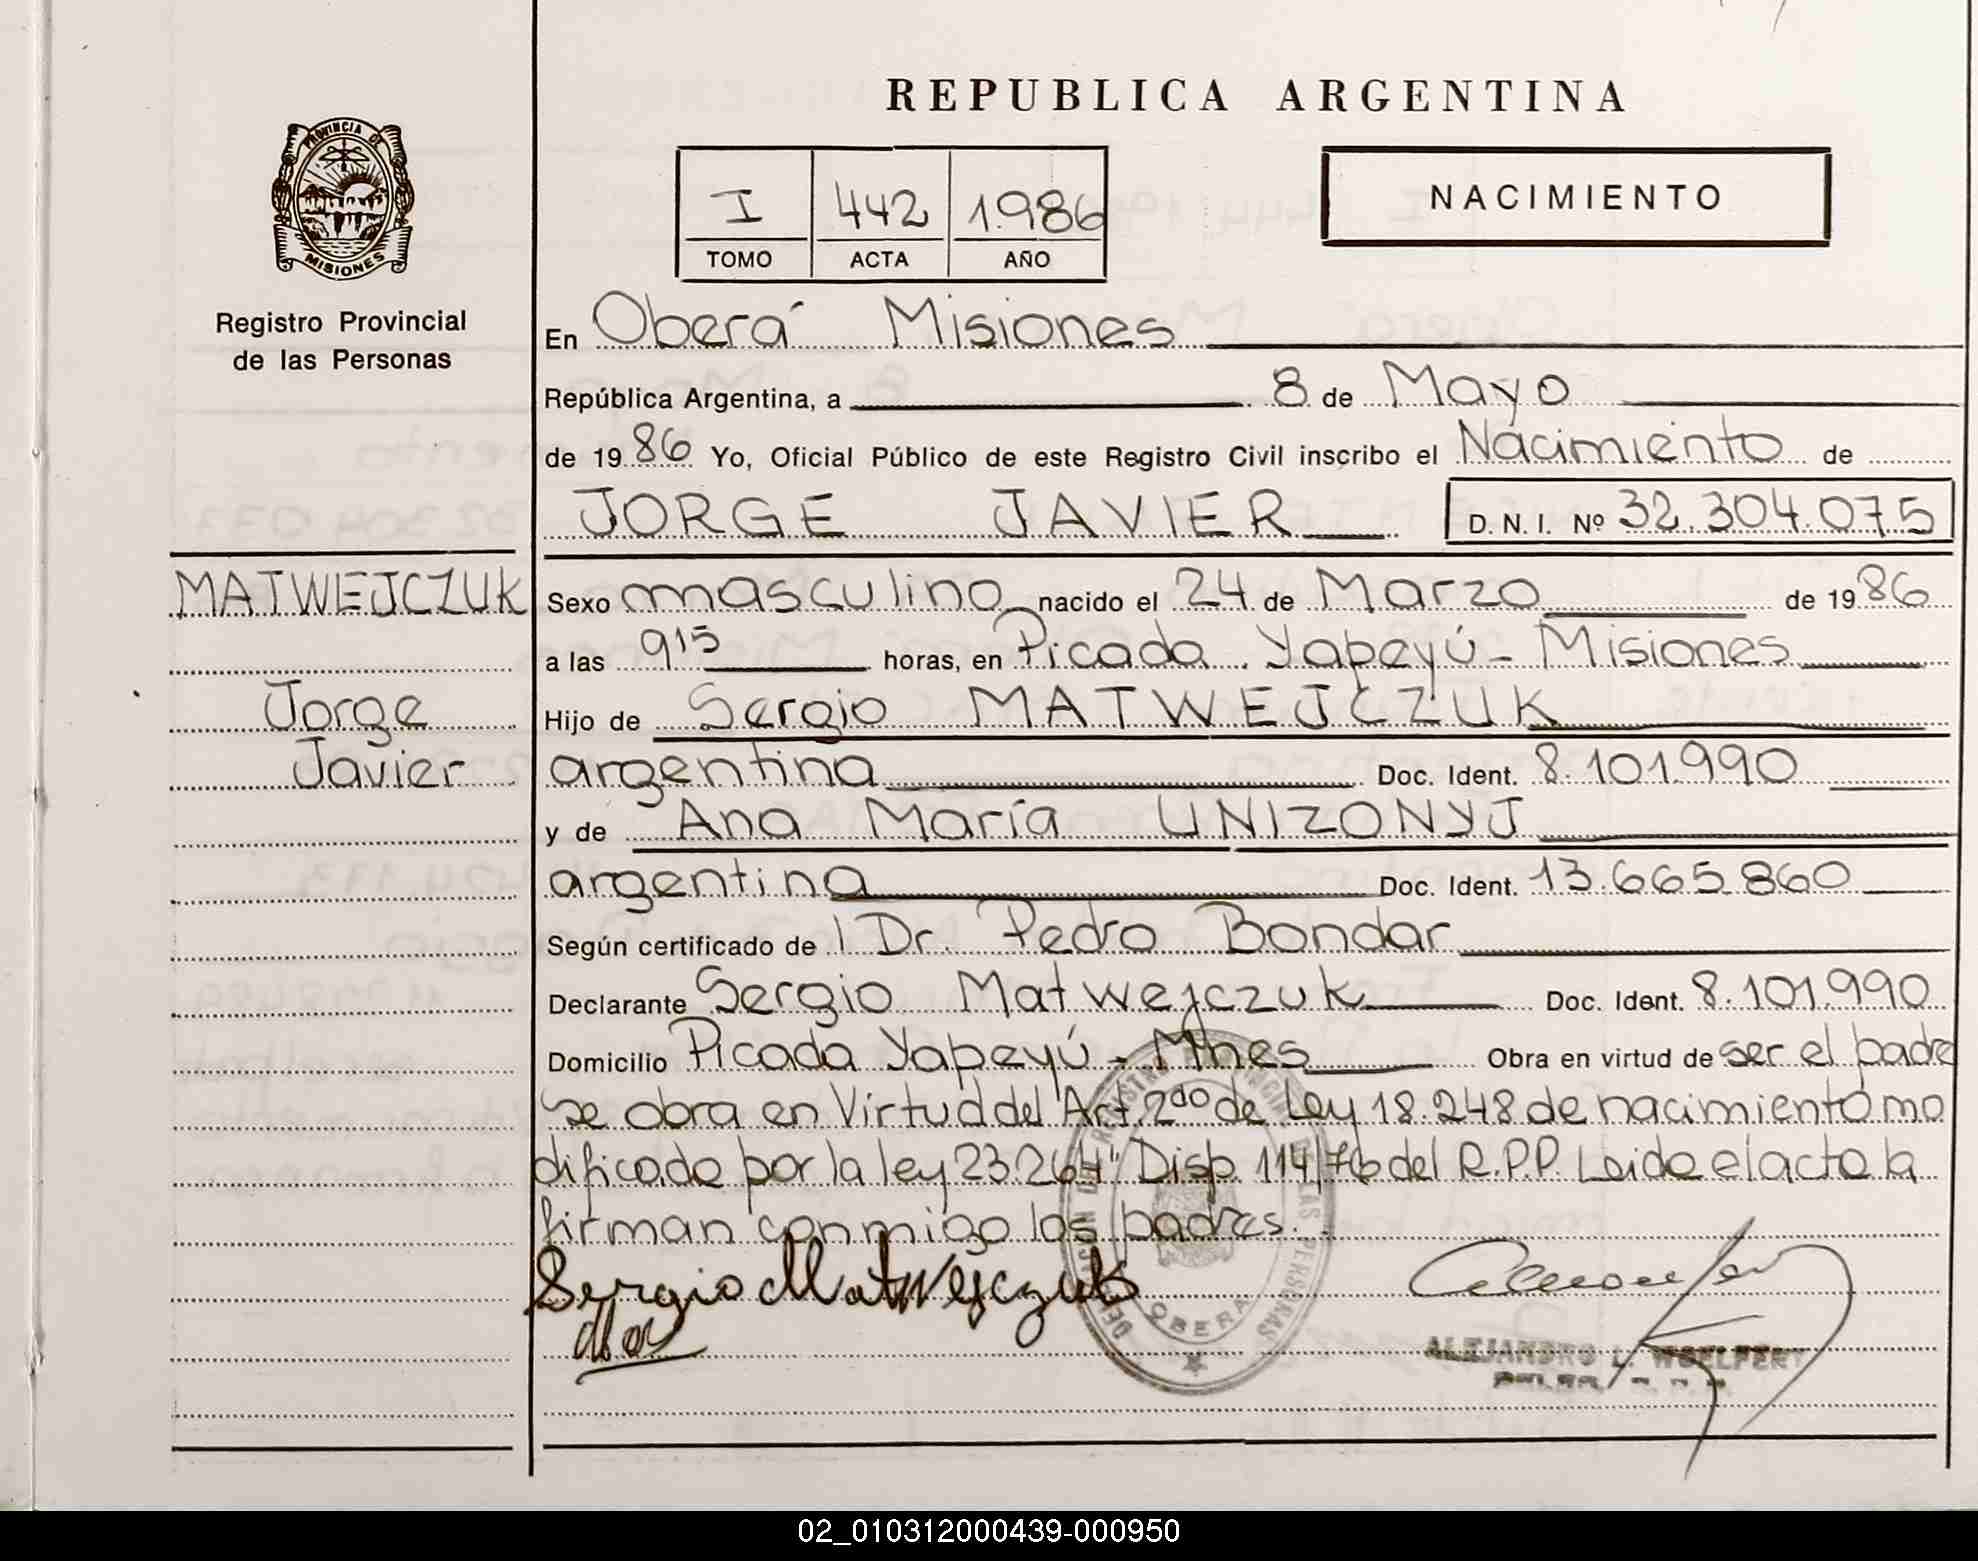 REPUBLICA ARGENTINA
PROVINCIA DE
MISIONES
Registro Provincial
de las Personas
I 442 1.986
TOMO ACTA AÑO
NACIMIENTO
En Oberá Misiones
República Argentina, a 8 de Mayo
de 19 86 Yo, Oficial Público de este Registro Civil inscribo el Nacimiento de
JORGE JAVIER D. N. I. Nº 32.304.075
MATWEJCZUK
Jorge
Javier
Sexo masculino nacido el 24 de Marzo de 19 86
a las 9 15 horas, en Picada Yapeyú - Misiones
Hijo de Sergio MATWEJCZUK
argentina Doc. Ident. 8.101.990
y de Ana María UNIZONYJ
argentina Doc. Ident. 13.665.860
Según certificado de Dr. Pedro Bondar
Declarante Sergio Matwejczuk Doc. Ident. 8.101.990
Domicilio Picada Yapeyú - Mnes Obra en virtud de ser el padre
se obra en Virtud del "Art. 2do de Ley 18.248 de nacimiento mo
dificada por la ley 23.264" Disp. 114/76 del R.P.P. Leida el acta la
firman conmigo los padres.
Sergio Matwejczuk
OBERA
ALEJANDRO L. WOELFERT
02_010312000439-000950